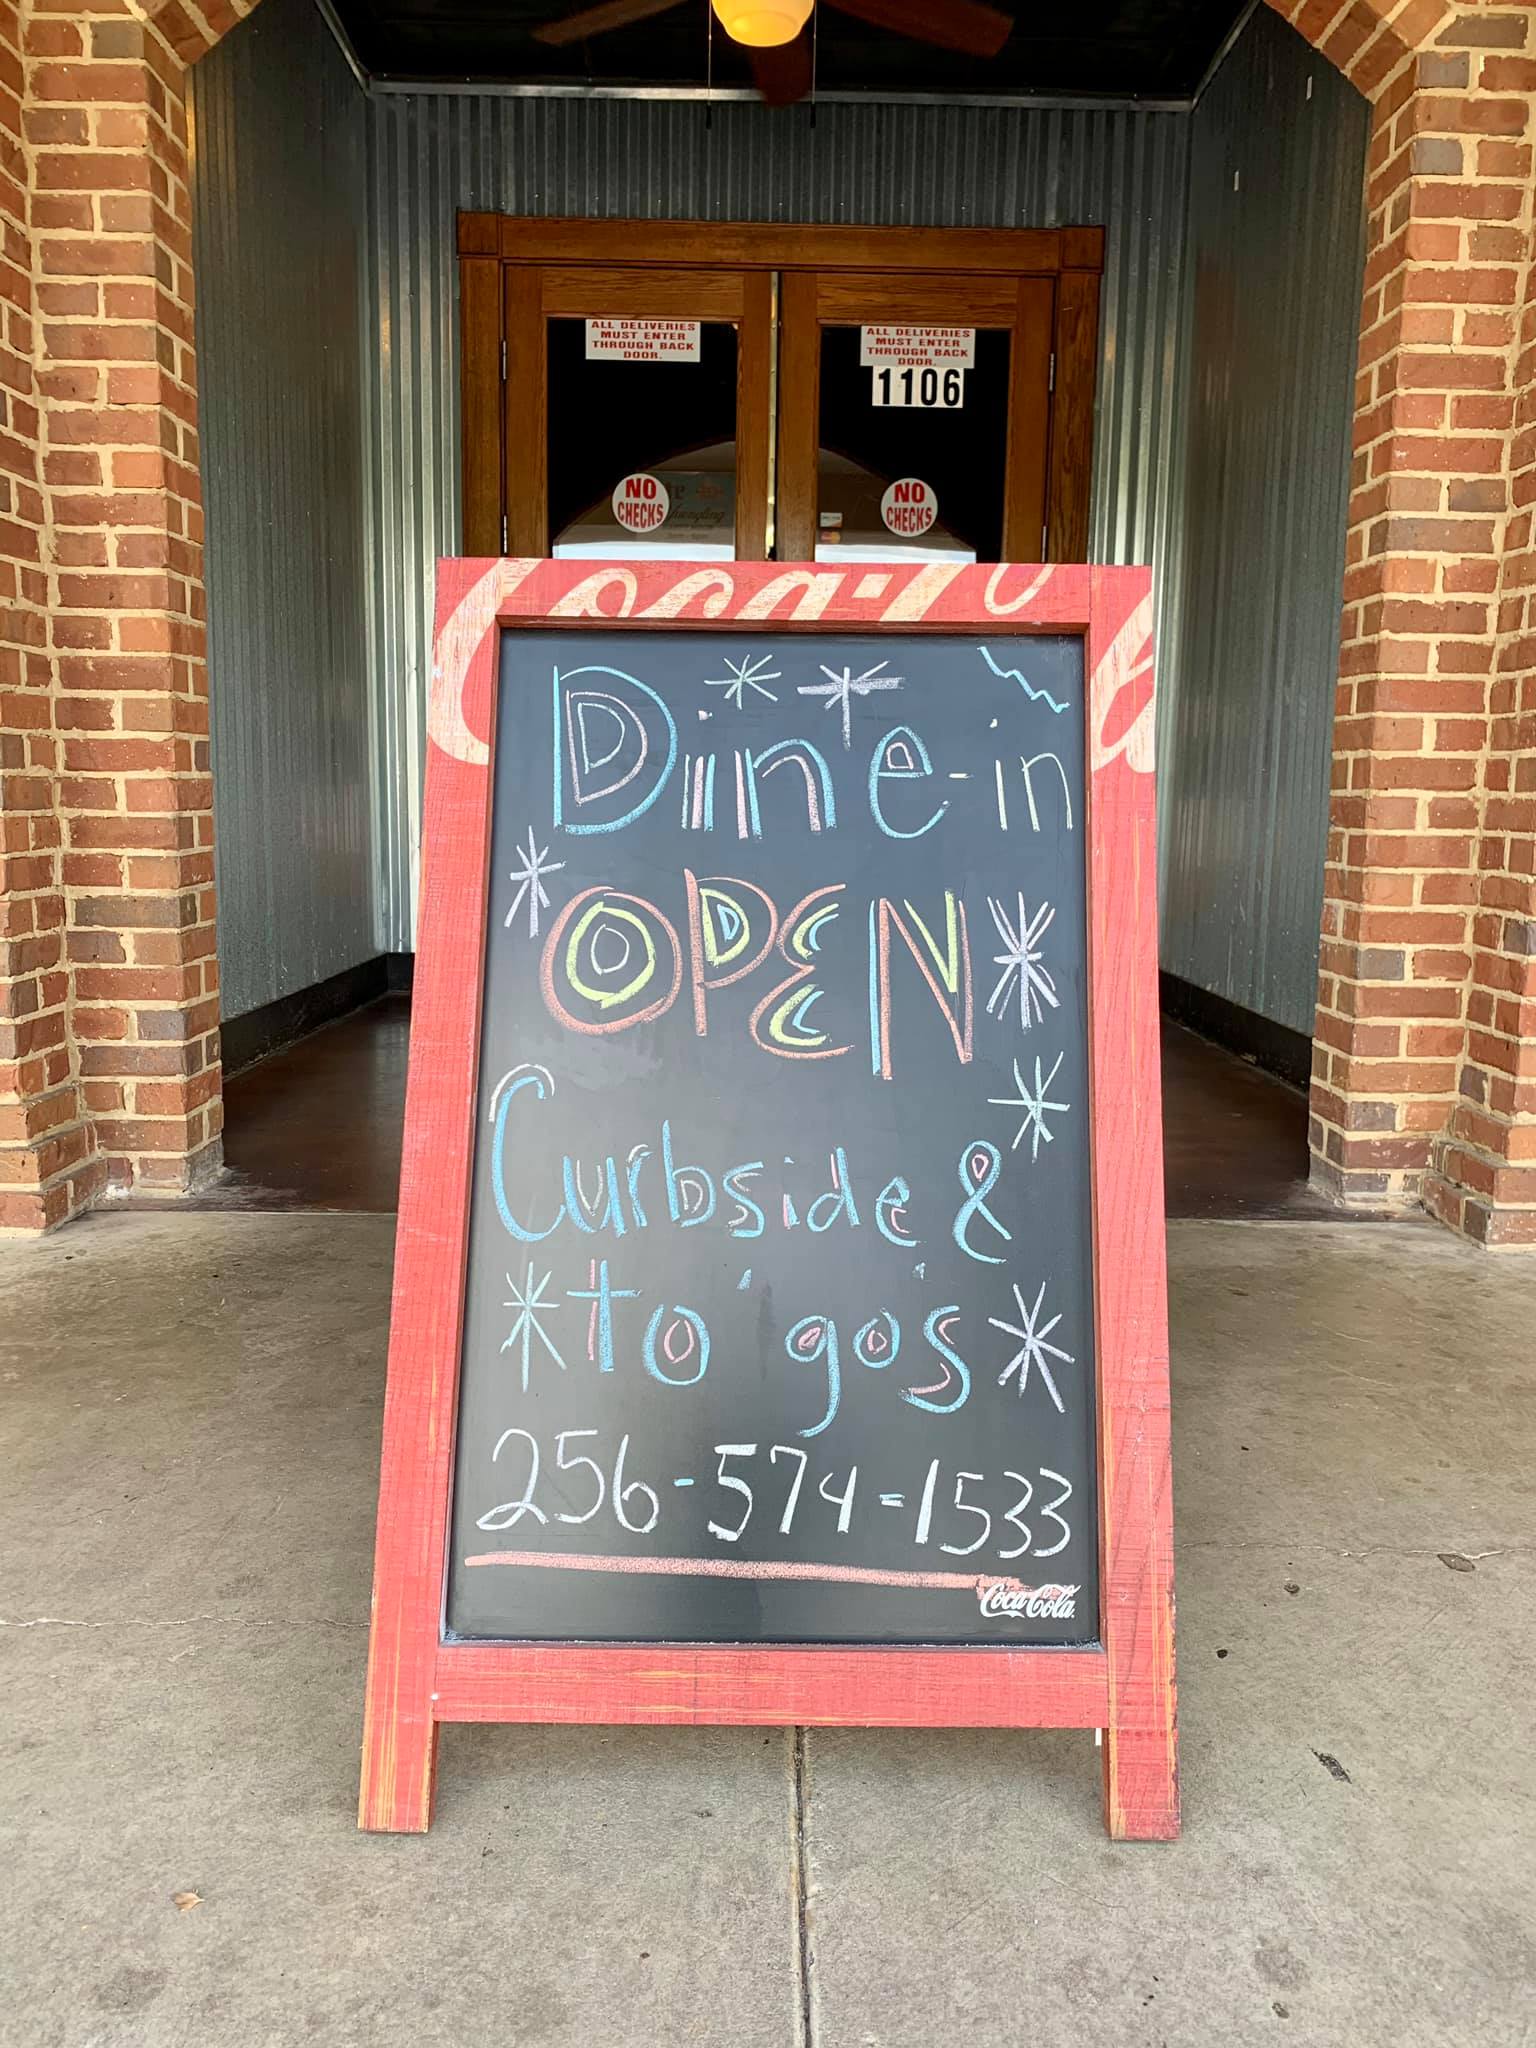 ALL DELIVERIES
MUST ENTER
THROUGH BACK
DOOR.
ALL DELIVERIES
MUST ENTER
THROUGH BACK
DOOR.
1106
NO
CHECKS
NO
CHECKS
Yuengling
Coca-Co a
Dine-in
OPEN
Curbside &
to 'go's
256-574-1533
Coca-Cola